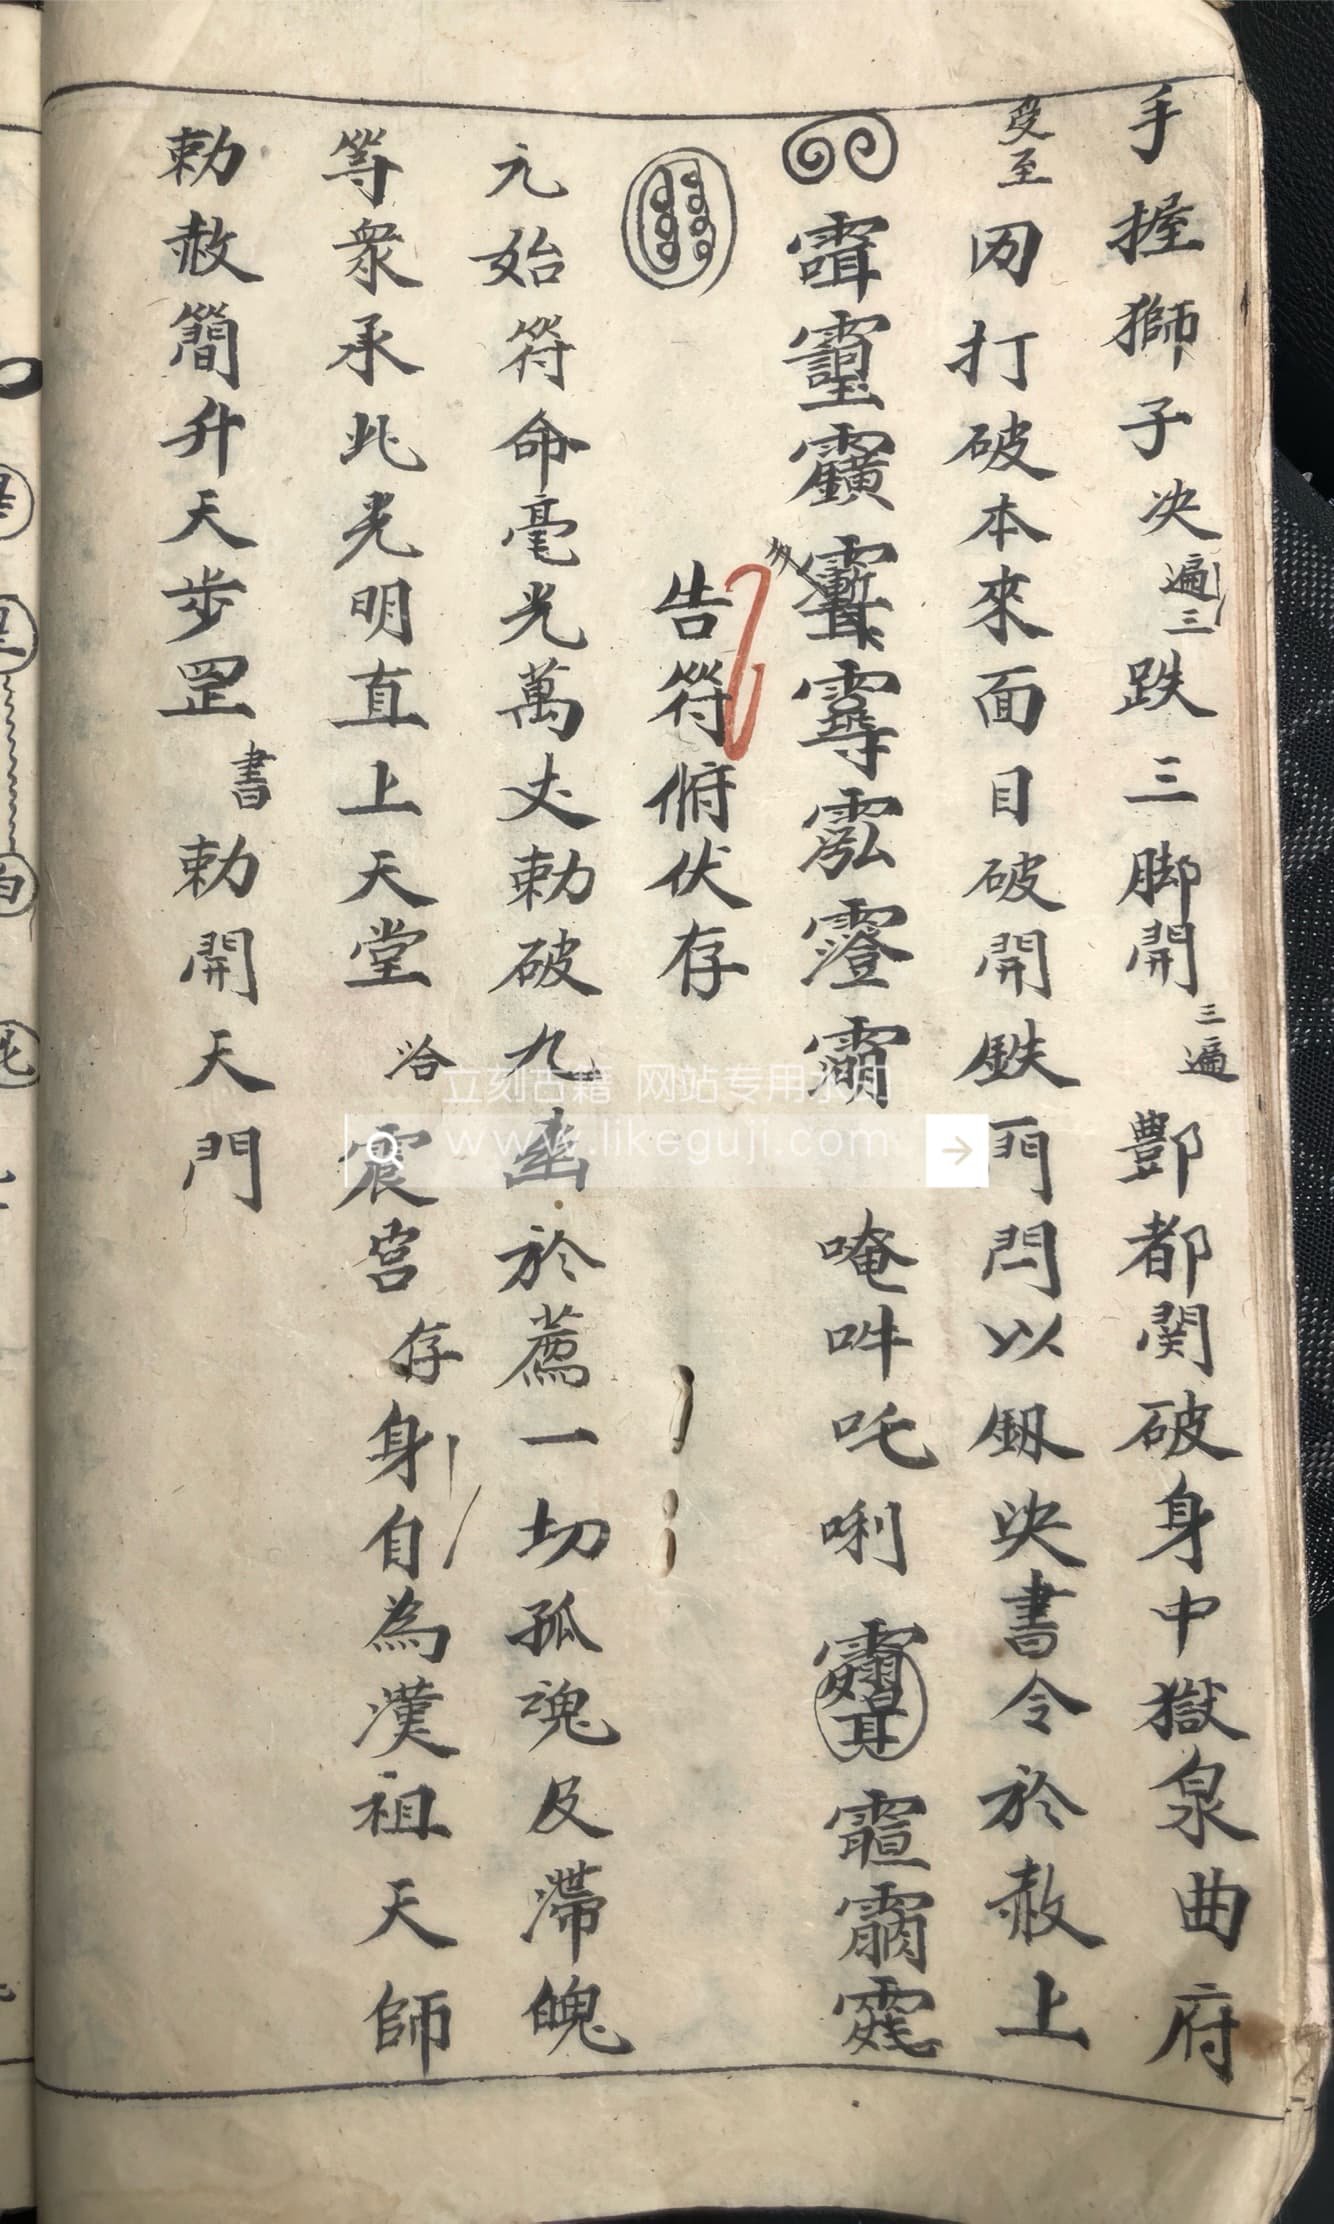 手握獅子決遍三跌三脚開三遍酆都関破身中獄泉曲府
至囦打破本來面目破開鉄門閂以釼決書令於赦上
唵吽吒唎
告符俯伏存
元始符命毫光萬丈勅破九幽於薦一切孤魂及滯魄
等衆承此光明直上天堂洽震宮存身自為漢祖天師
勅赦簡升天步罡書勅開天門
立刻古籍 网站专用水印
www.likeguji.com